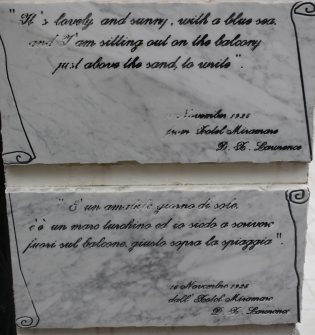 "It's lovely and sunny, with a blue sea,
and I am sitting out on the balcony
just above the sand, to write".
November 1925
from Hotel Miramare
D. H. Lawrence
"E' un giorno di sole,
c'è un mare turchino ed io siedo a scrivere
fuori sul balcone, giusto sopra la spiaggia".
16 Novembre 1925
dall' Hotel Miramare
D. H. Lawrence